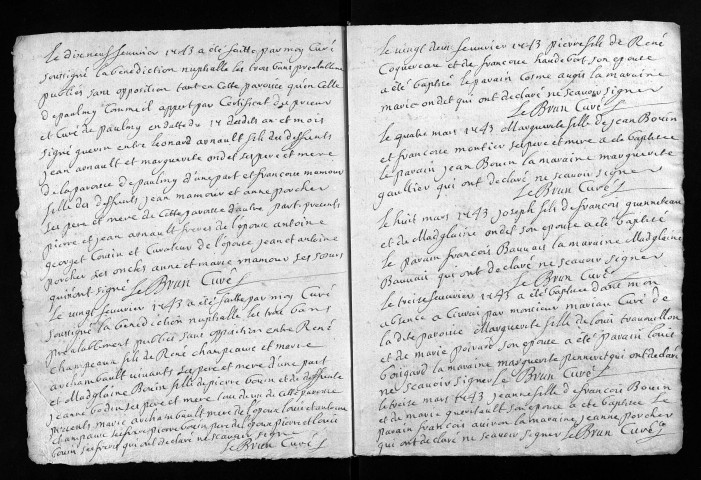 Le dixneuf feuvrier 1743 a été faitte par moy Curé
soussigné la bénédiction nuptialle les trois bans préalablem
publiés sans opposition tant en cette paroisse qu'en celle
de paulmy comme il appert par Certificat du prieur
et Curé de paulmy en datte du 17 desdits an et mois
signé guerin entre leonard arnault fils des deffunts
jean arnault et marguerite ondet ses pere et mere
de la paroisse de paulmy d'une part et francoise mamour
fille des deffunts jean mamour et anne porcher
ses pere et mere de cette paroisse d'autre part presents
pierre et jean arnault freres de l'époux antoine
georget Cousin et Curateur de l'epouse jean et antoine
porcher ses oncles anne et marie mamour ses sœurs
qui n'ont signé Le Brun Curé
Le vingt feuvrier 1743 a été faitte par moy Curé
soussigné la bénédiction nuptialle les trois bans
préalablement publiés sans opposition entre René
Champeaux fils de René champeaux et marie
archambault vivants ses pere et mere d'une part
et Madglaine Bouin fille de pierre bouin et de deffunte
jeanne bodin ses pere et mere tous deux de cette paroisse
presents marie archambault mere de l'époux louis
champeaux son frere pierre bouin pere de l'epouse pierre et louis
bouin ses freres qui ont declaré ne scauoir signer
Le Brun Curé
Le vingt deux feuvrier 1743 pierre fils de René
Coquereau et de francoise handebert son epouse
a été baptisé le parain Cosme augis la maraine
marie ondet qui ont declaré ne scauoir signer
Le Brun Curé
Le quatre mars 1743 Marguerite fille de jean Bouin
et francoise montier ses pere et mere a été baptisée
le parain jean Bouin la maraine marguerite
gaultier qui ont declaré ne scauoir signer
Le Brun Curé
Le huit mars 1743 joseph fils de francois guenneteau
et de Madglaine ondet son epouse a été baptisé
Le parain francois Bauuais la maraine Madglaine
Bauuais qui ont declaré ne scauoir signer
Le Brun Curé
Le treize feuvrier 1743 a été baptisée dans mon
absence a Ciuran par monsieur mariau Curé de
la dite paroisse Marguerite fille de louis
et de marie poirier son epouse a été parain louis
la maraine marguerite qui ont declaré
ne scauoir signer Le Brun Curé
Le treize mars 1743 jeanne fille de francois Bouin
et de marie guenault son epouse a été baptisée Le
parain francois auiron la maraine jeanne porcher
qui ont declaré ne scauoir signer Le Brun Curé